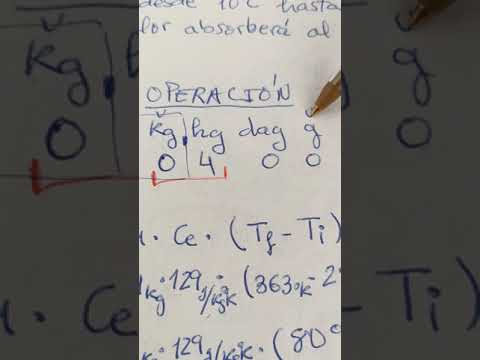 desde 10°C hasta
lor absorberá al
OPERACIÓN
kg
kg hg dag g
g
0
0 4 0 0
0
· Ce · (Tf - Ti)
kg · 129 J/kg°K (363°K - 2
· Ce · Ti
· 129 J/kg°K · (80°